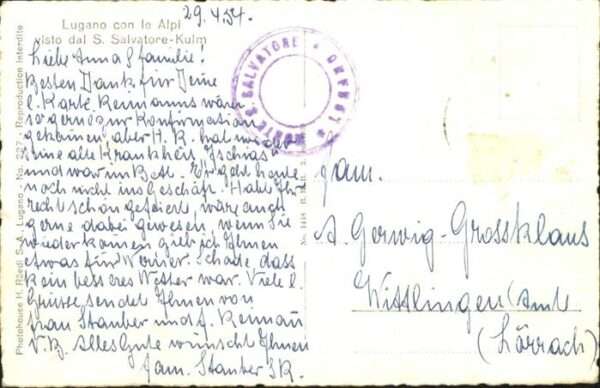 29.4.54.
Lugano con le Alpi
visto dal S. Salvatore-Kulm
Liebe Anna & familie!
Besten Dank für Deine
l. Karte. Renmanns wären
so gerne zur Konfirmation
gekommen, aber H. R. hat wieder
seine alte Krankheit "Ischias"
und war im Bett. Er geht heute
noch nicht ins Geschäft. Habt Ihr
recht schön gefeiert, wäre auch
gerne dabei gewesen, wenn Sie
wieder kommen gieb ich Ihnen
etwas für Werner. Schade dass
kein besseres Wetter war. Viele l.
Grüsse, sendet Ihnen von
frau Stauber und f. Renmañ
V. B. Alles Gute wünscht Ihnen
fam. Stauber
MONTE S. SALVATORE
LUGANO
Photohouse H. Rüedi S.-A. Lugano - No. 227 - Reproduction interdite
fam.
A. Gerwig-Grossklaus
Wittlingen (Amt
(Lörrach)